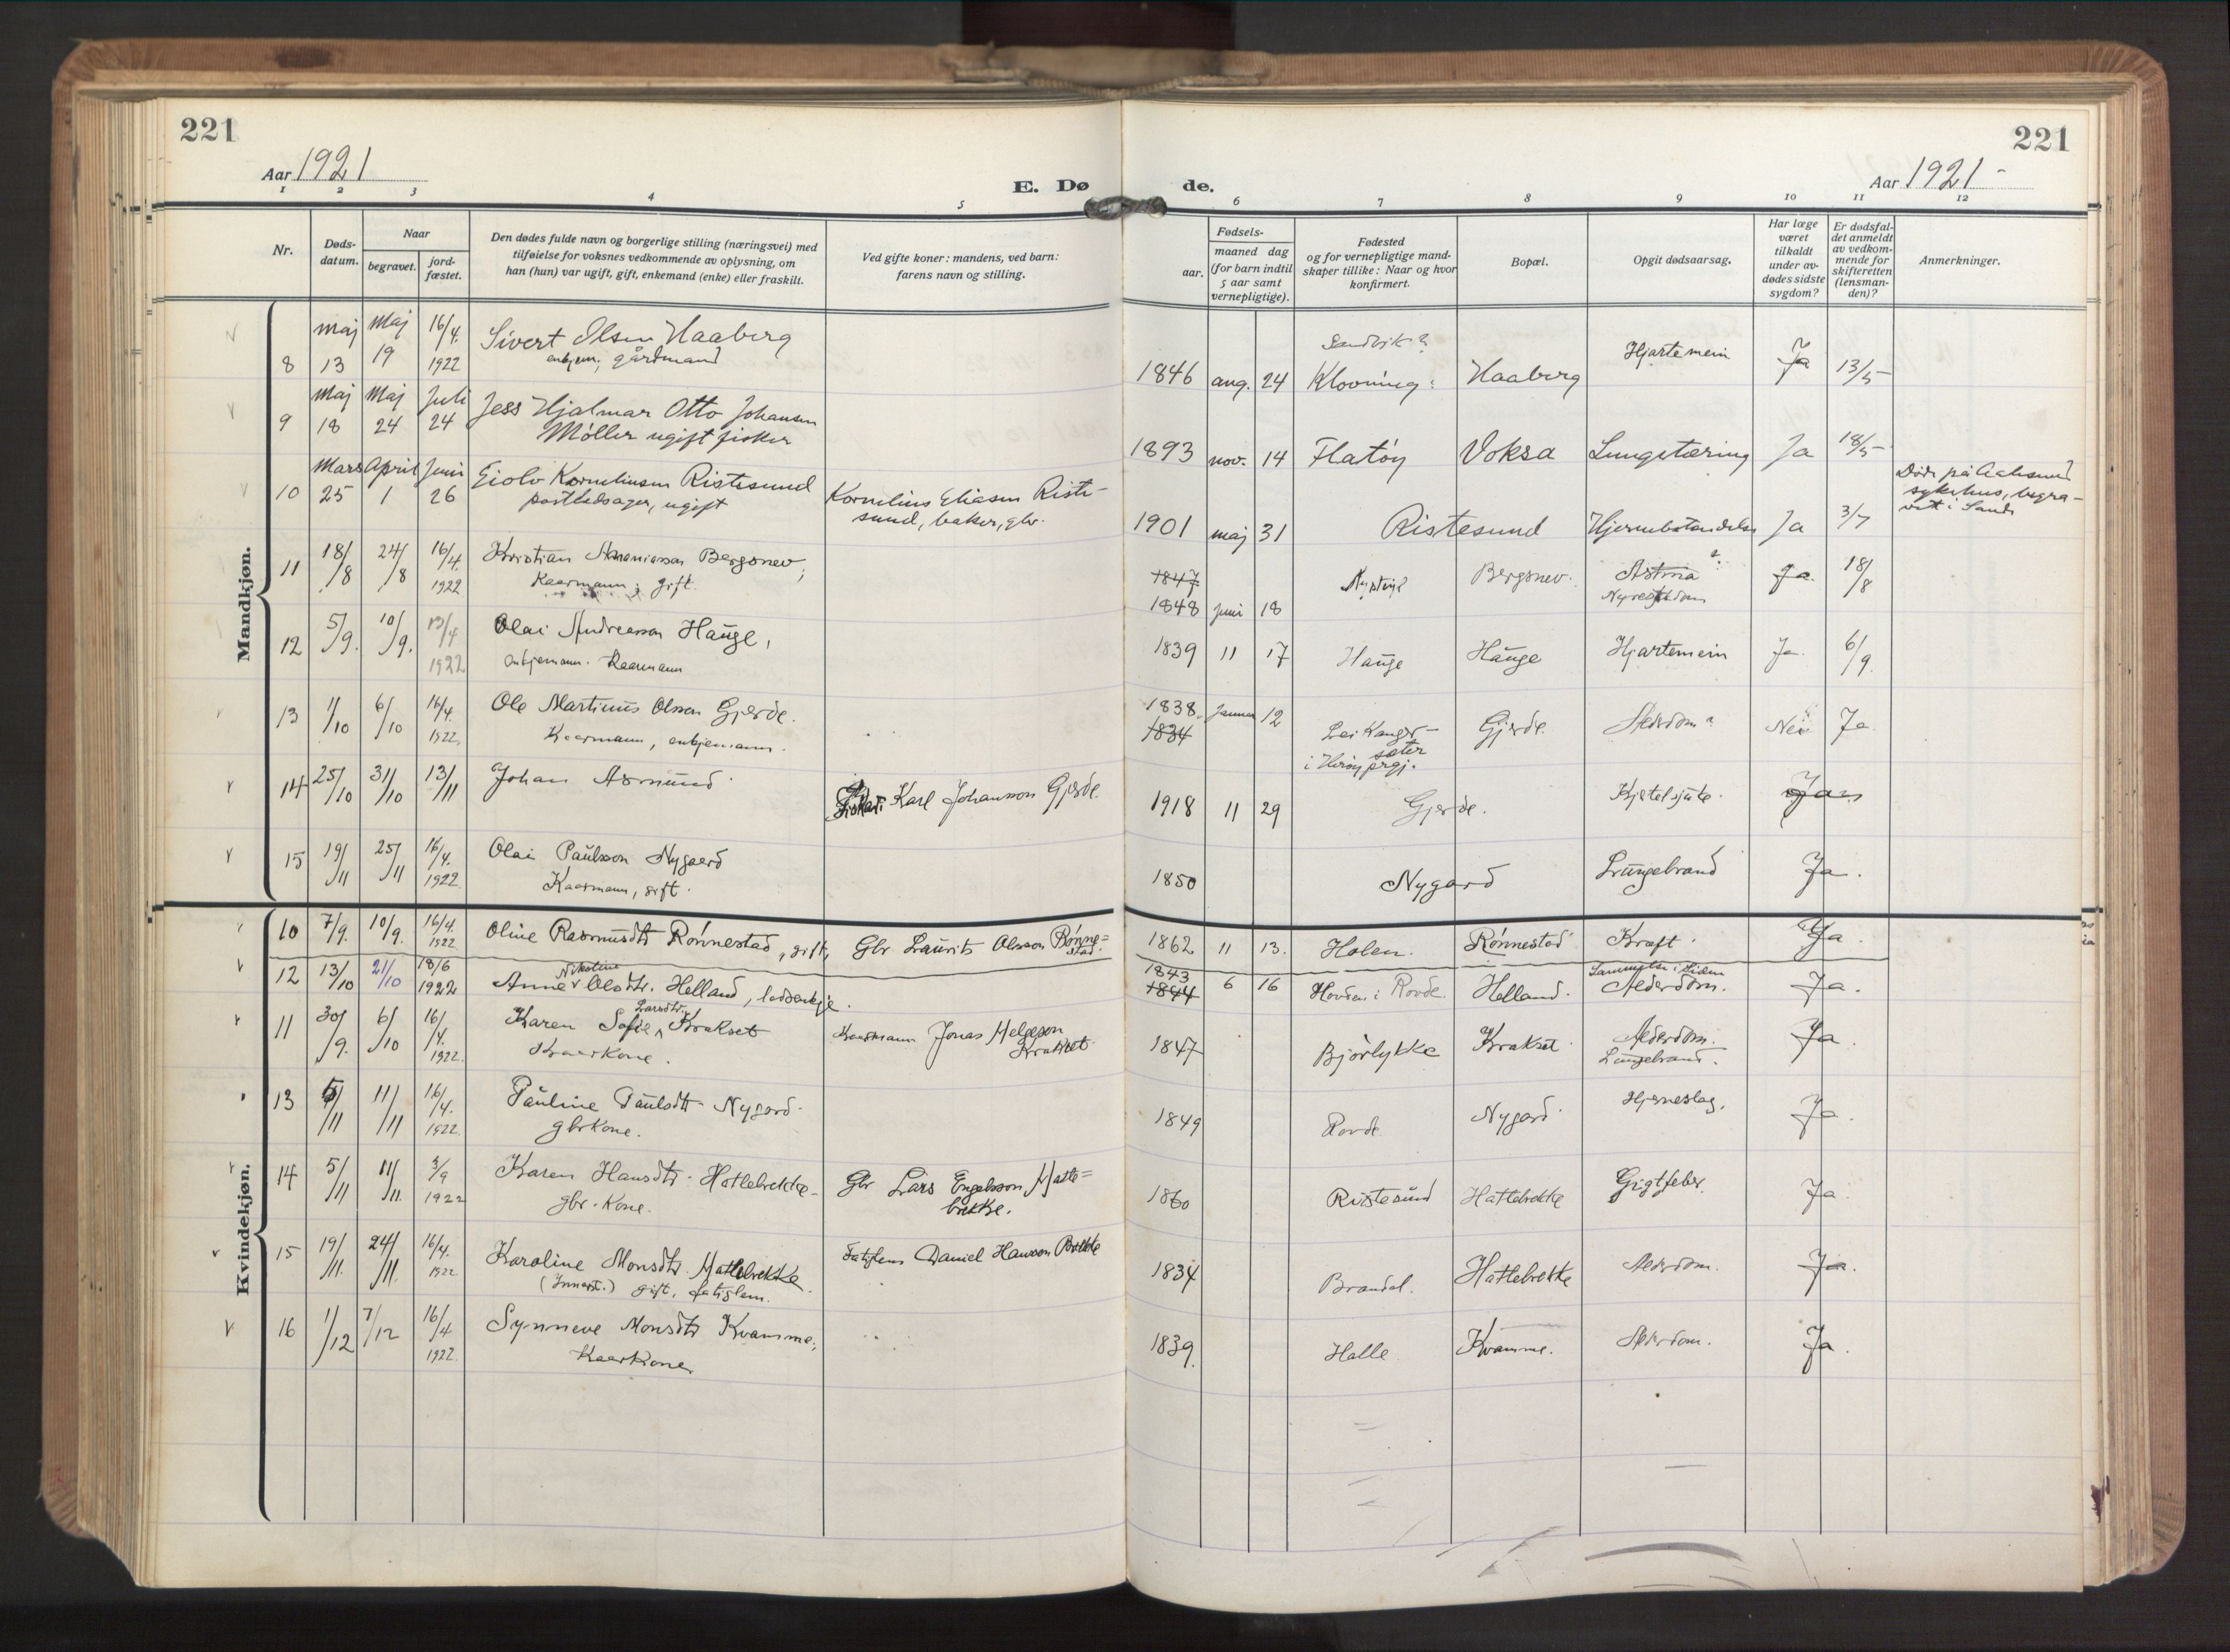 221
221
Aar 1921
E. Døde.
Aar 1921 -
1 2 3 4 5 6 7 8 9 10 11 12
Nr.
Døds-datum.
Naar
begravet.
jord-fæstet.
Den dødes fulde navn og borgerlige stilling (næringsvei) med
tilføielse for voksnes vedkommende av oplysning, om
han (hun) var ugift, gift, enkemand (enke) eller fraskilt.
Ved gifte koner: mandens, ved barn:
farens navn og stilling.
Fødsels-
aar.
maaned dag
(for barn indtil
5 aar samt
vernepligtige).
Fødested
og for vernepligtige mand-
skaper tillike: Naar og hvor
konfirmert.
Bopæl.
Opgit dødsaarsag.
Har læge
været
tilkaldt
under av-
dødes sidste
sygdom?
Er dødsfal-
det anmeldt
av vedkom-
mende for
skifteretten
(lensman-
den)?
Anmerkninger.
Mandkjøn.
8 maj 13 Maj 19 16/4. 1922 Sivert Olsen Haaberg
enkjem., gårdmand
1846 aug. 24 Sandvik? Klovning: Haaberg Hjartemein Ja 13/5
9 Maj 18 Maj 24 Juli 24 Jess Hjalmar Otto Johansen
Møller ugift fisker
1893 nov. 14 Flatøy Voksa Lungetæring Ja 18/5
10 Mars 25 April 1 Juni 26 Eiolv Korneliussen Ristesund
postledsager, ugift
Kornelius Eliasen Riste-
sund, baker, gbr.
1901 maj 31 Ristesund Hjernebetændelse Ja 3/7
Døde på Aalesund
sykehus, begra-
vet i Sande
11 18/8 24/8 16/4. 1922 Kristian Ananiasson Bergsnev,
Kaarmann, gift.
1847
1848 juni 18 Bergsnev. Astma?
Ja. 18/8
12 5/9. 10/9. 13/4 1922 Olai Andreasson Hauge,
enkjemann. Kaarmann
1839 11 17 Hauge Hauge Hjartemein Ja. 6/9.
13 1/10 6/10 16/4. 1922. Ole Martinus Olsson Gjerde.
Kaarmann, enkjemann.
1838. Januar 12
1834
Leikanger-
sæter
i Herøy prgj.
Gjerde. Alderdom? Nei Ja
14 25/10 31/10 13/11 Johan Asmund
Karl Johansson Gjerde.
1918 11 29 Gjerde. Kjetelsjuke. Ja
15 19/11 25/11 16/4. 1922 Olai Paulsson Nygaard
Kaarmann, gift.
1850 Nygard Lungebrand Ja.
Kvindekjøn.
10 7/9. 10/9. 16/4. 1922 Oline Rasmusdtr Rönnestad, gift, Gbr Laurits Olsson Rönne=
stad.
1862 11 13. Holen. Rönnestad Kræft. Ja.
12 13/10 21/10 18/6 1922 Anne Nikoline Olsdtr. Helland, losenkje.
1843
1844 6 16 Hovden i Rovde. Helland. Alderdom. Ja.
11 30/9. 6/10 16/4. 1922. Karen Sofie Larsdtr. Krakset
Kaarkone.
Kaarmann Jonas Helgeson
Krakset
1847 Bjørlykke Krakset Alderdom.
Lungebrand. Ja.
13 5/11 11/11 16/4. 1922. Pauline Paulsdtr Nygard.
gbrkone.
1849 Rovde. Nygard. Hjerneslag. Ja.
14 5/11 11/11. 3/9 1922 Karen Hansdtr. Hatlebrekke
gbr. kone.
Gbr Lars Engelsson Hatle=
brekke.
1860 Ristesund Hatlebrekke Gigtfeber. Ja
15 19/11. 24/11. 16/4. 1922 Karoline Monsdtr. Hatlebrekke.
(Innerst.) gift. fatiglem.
Fatiglem Daniel Hansson Brekke
1834 Brandal. Hatlebrekke Alderdom. Ja.
16 1/12 7/12 16/4 1922. Synneve Monsdtr Kvamme,
Kaarkone
1839. Halle Kvamme. Alderdom. Ja.